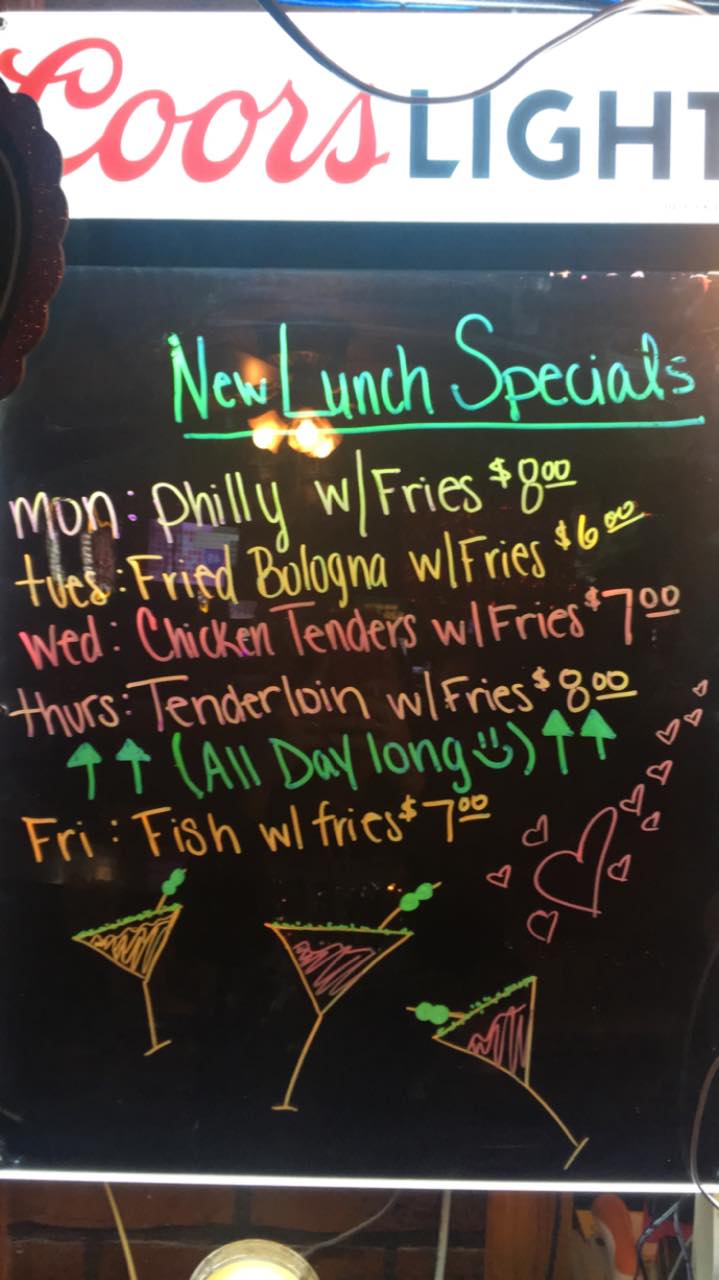 Coors LIGHT
New Lunch Specials
Mon: Philly w/Fries $8.00
tues: Fried Bologna w/Fries $6.00
Wed: Chicken Tenders w/Fries $7.00
thurs: Tenderloin w/Fries $8.00
(All Day long)
Fri: Fish w/ fries $7.00